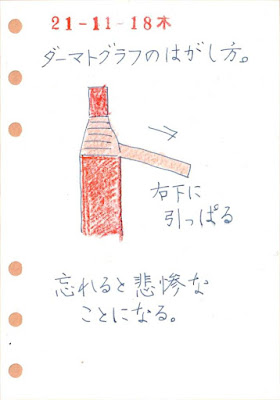 21-11-18木
ダーマトグラフのはがし方。
右下に
引っぱる
忘れると悲惨な
ことになる。